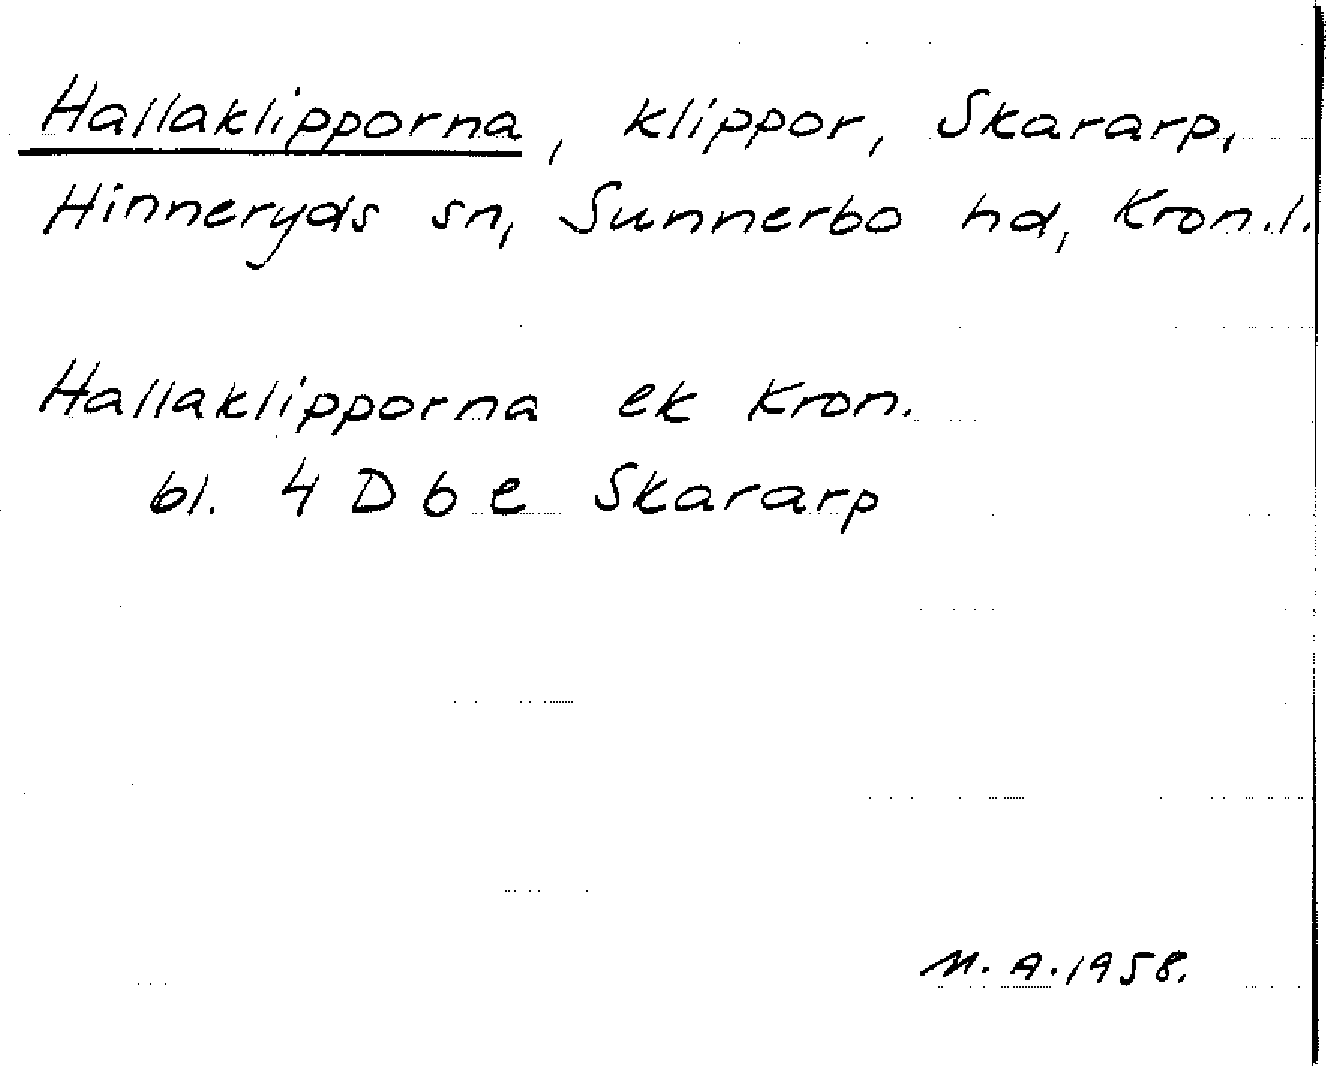 Hallaklipporna, klippor, Skararp,
Hinneryds sn, Sunnerbo hd, Kron.l.
Hallaklipporna ek Kron.
bl. 4 D 6 e Skararp
M. A. 1958.